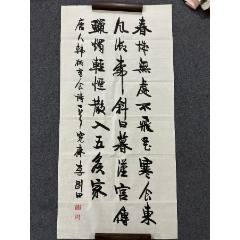 春城無處不飛花寒食東
風御柳斜日暮漢宮傳
蠟燭輕煙散入五侯家
唐人韓翃寒食詩一首寬齋李剛田